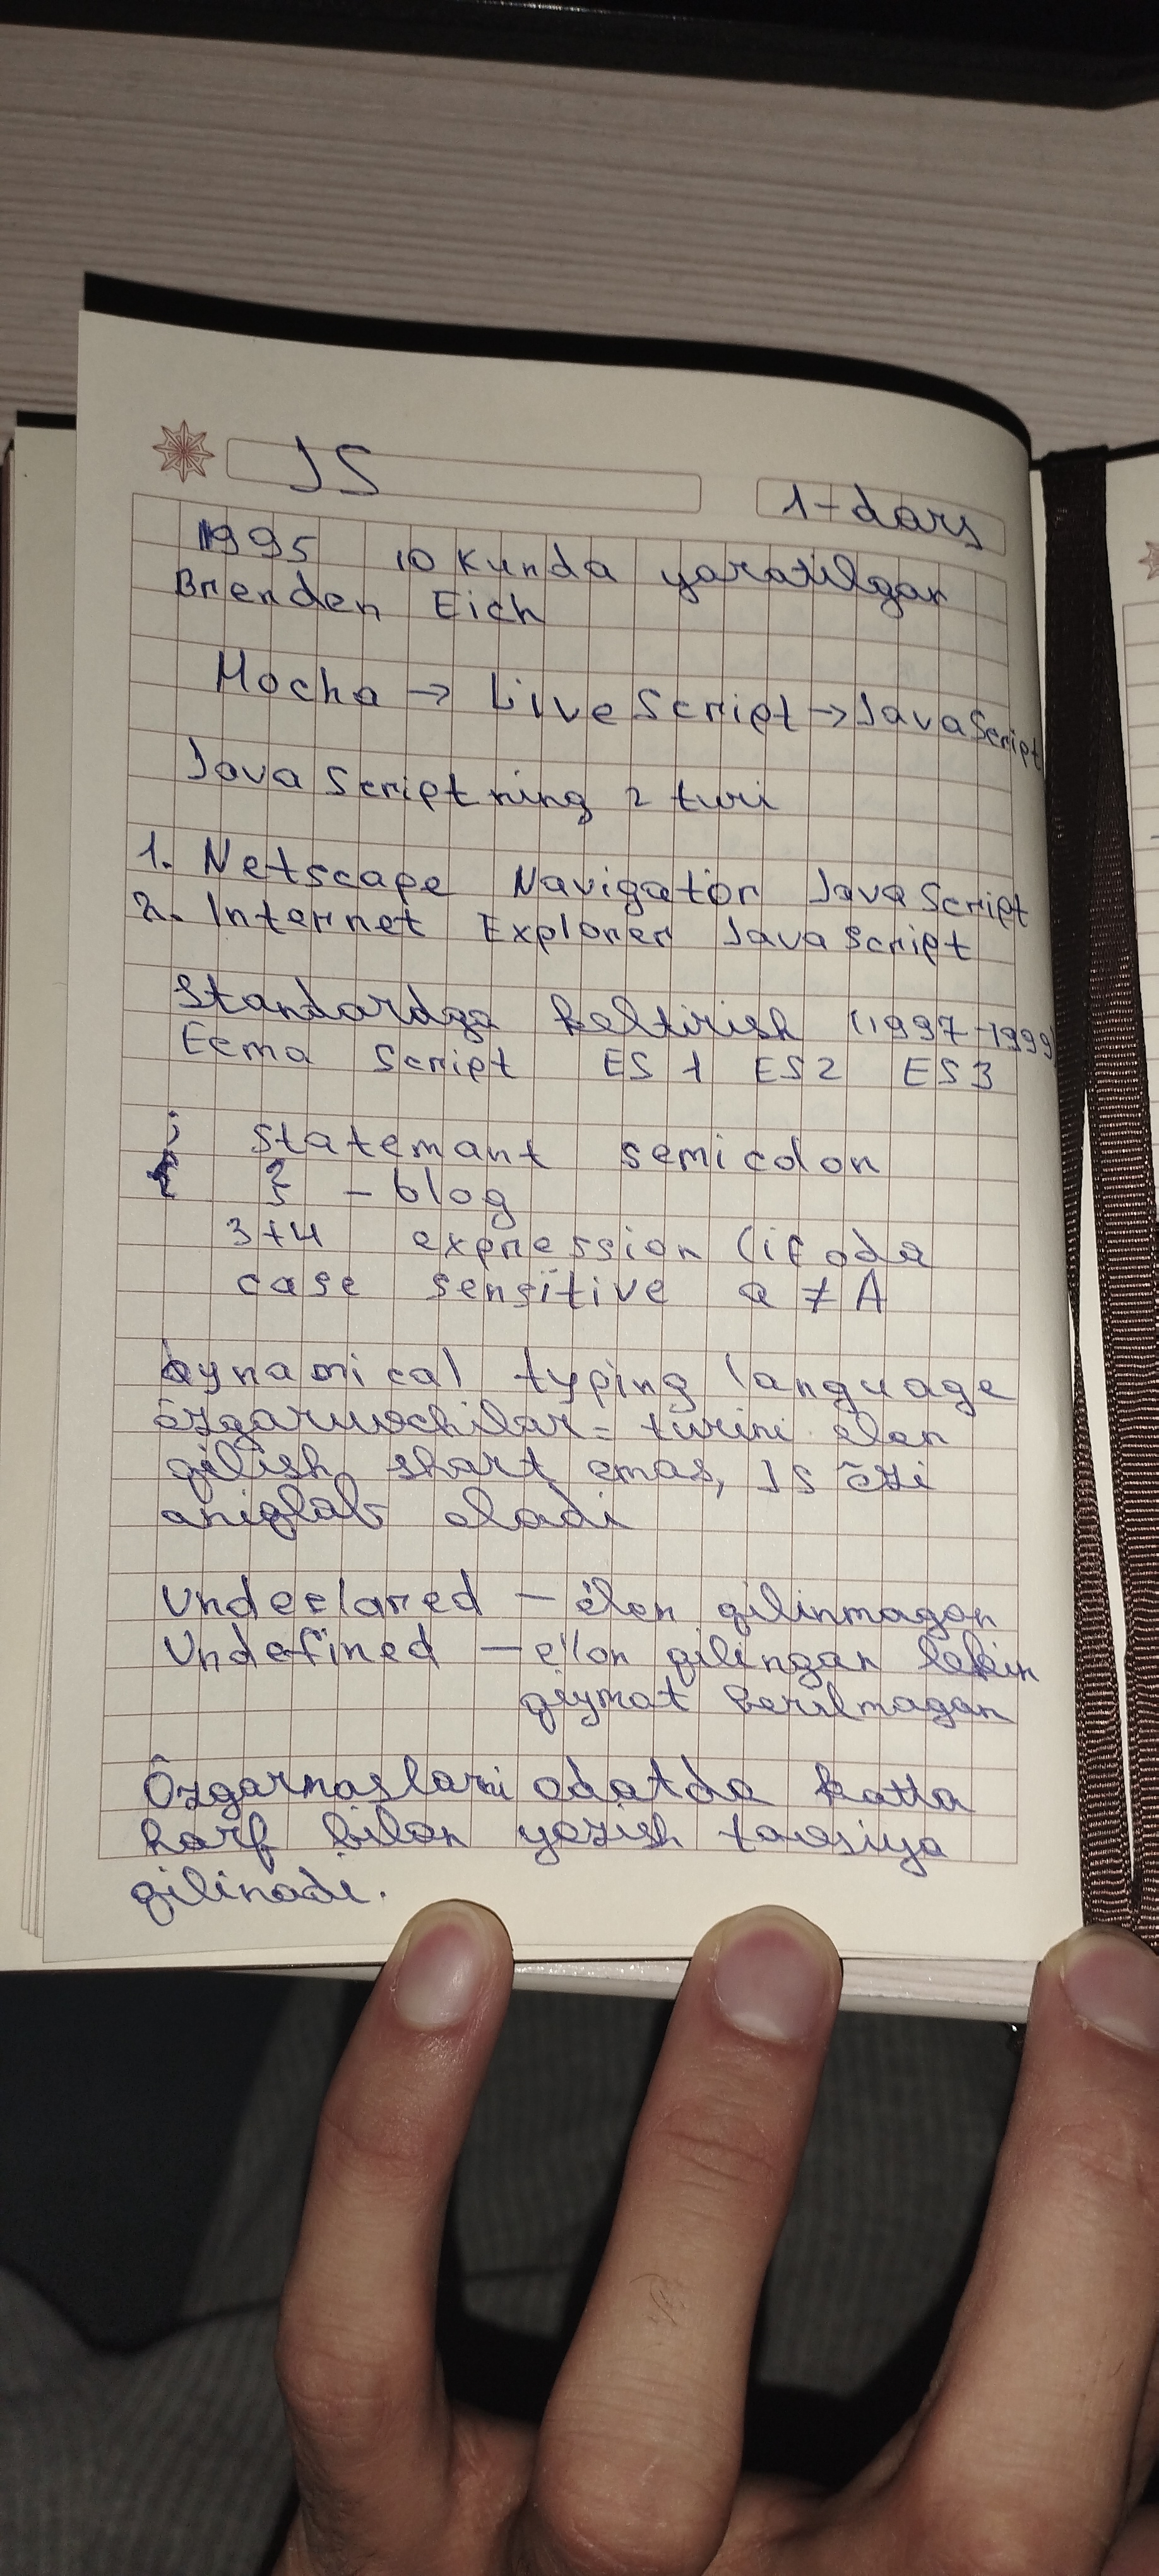 JS
1-dars
1995 10 kunda yaratilgan
Brenden Eich
Mocha → LiveScript → JavaScript
JavaScriptning 2 turi
1. Netscape Navigator JavaScript
2. Internet Explorer JavaScript
Standardga keltirish (1997-1999)
Ecma Script ES1 ES2 ES3
; statemant semicolon
{ } - blog
3+4 expression (ifoda
case sensitive a ≠ A
Dynamical typing language
õzgaruvchilar - turini elon
qilish shart emas, JS õzi
aniqlab oladi
Undeclared - e'lon qilinmagan
Undefined - e'lon qilingan lekin
qiymat berilmagan
Õzgarmaslarni odatda katta
harf bilan yozish tavsiya
qilinadi.